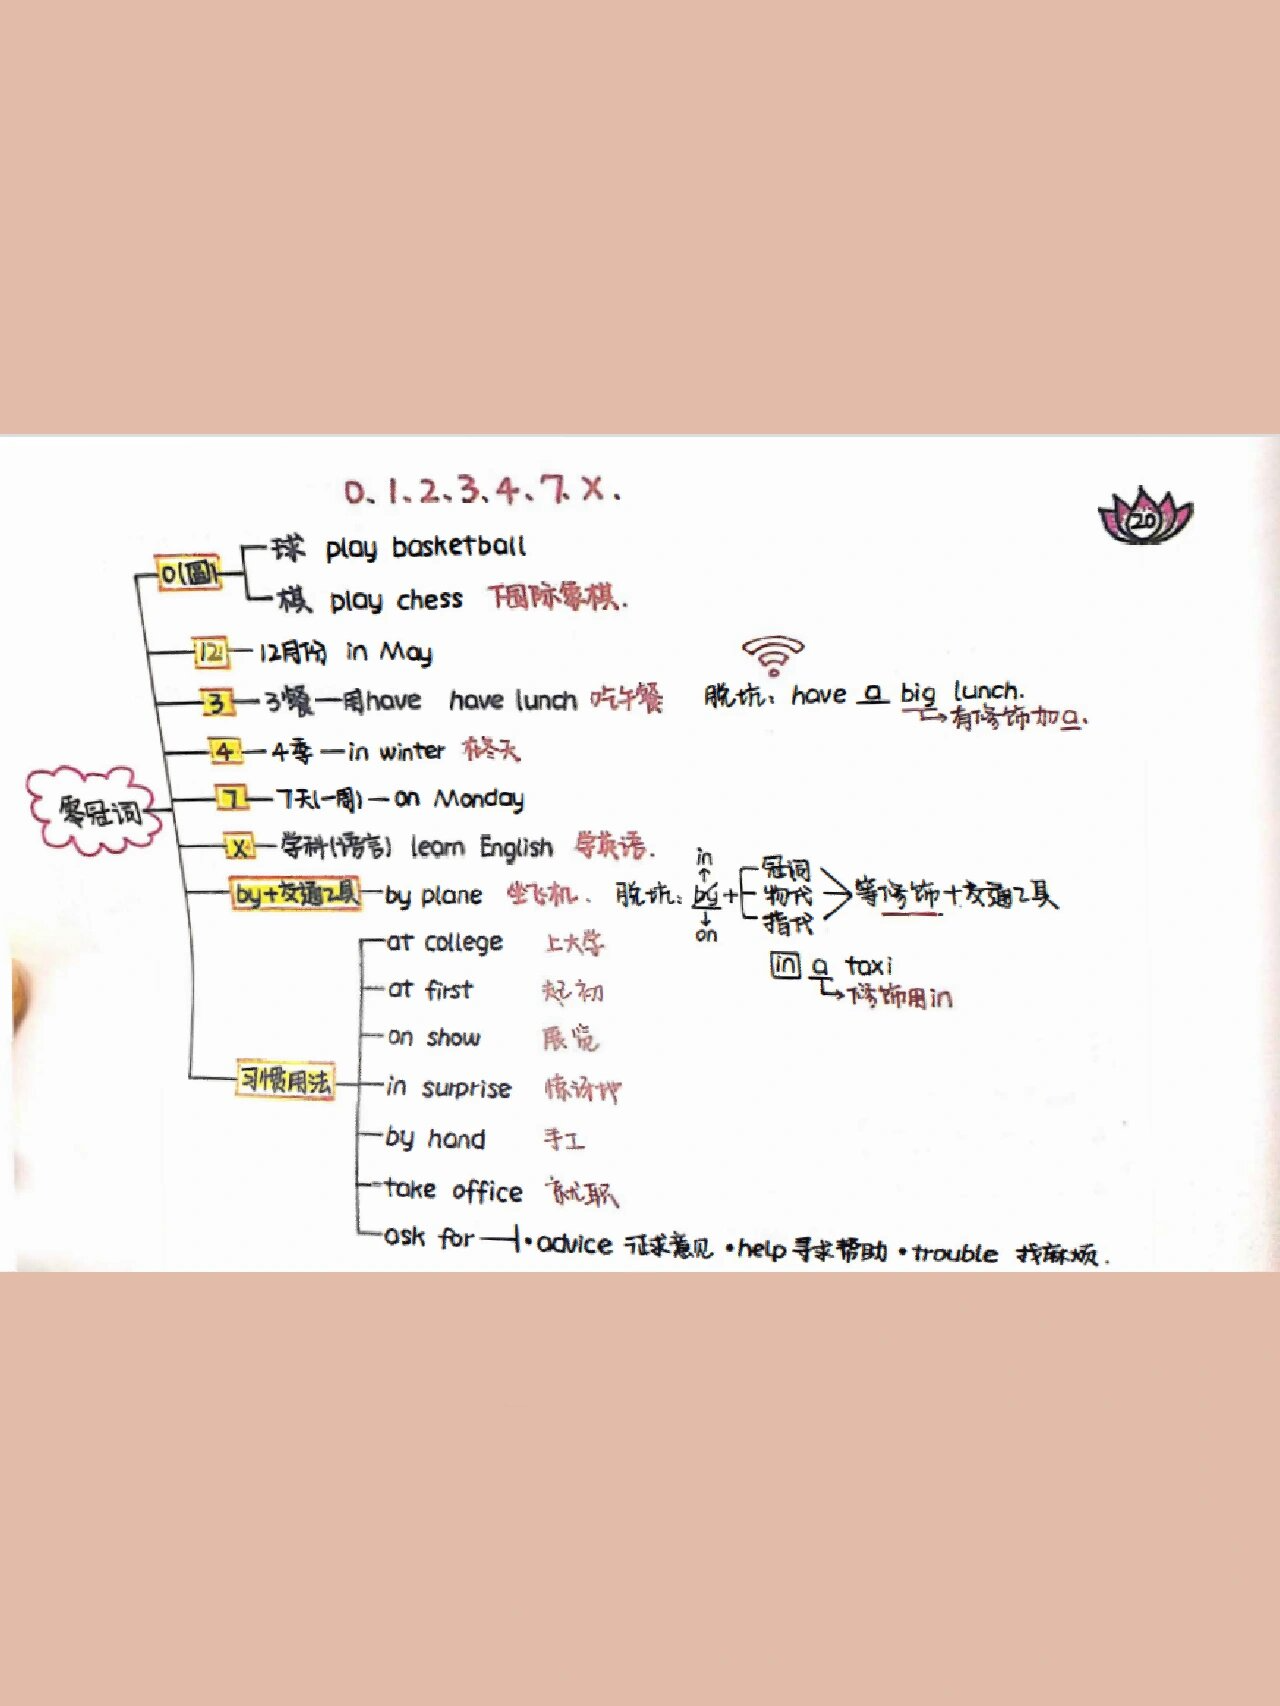 0、1、2、3、4、7、X.
20
零冠词
0(圆)
球 play basketball
棋 play chess 下国际象棋.
12 12月份 in May
3 3餐—用have have lunch 吃午餐 脱坑: have a big lunch.
有修饰加a.
4 4季—in winter 在冬天
7 7天(一周)—on Monday
X 学科(语言) learn English 学英语.
by+交通工具 by plane 坐飞机. 脱坑: by+
in
on
冠词
物代
指代
等修饰+交通工具
in a taxi
修饰用in
习惯用法
at college 上大学
at first 起初
on show 展览
in surprise 惊讶地
by hand 手工
take office 就职
ask for ·advice 征求意见 ·help 寻求帮助 ·trouble 找麻烦.